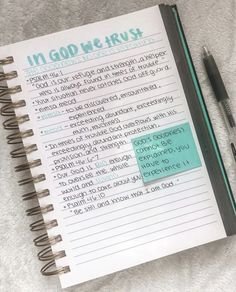 IN GOD WE TRUST
• PSALM 46:1
"God is our refuge and strength, a helper
who is always found in times of trouble"
• Your situation never catches God off guard.
to be discovered, encountered,
experienced
exceeding, abundant, exceedingly
much, muchness
• In times of trouble God overflows with his
exceedingly abundant protection,
provision and strength.
• PSALM 46:6-7
• Our God is big enough
to oversee the whole
world and
enough to care about you.
• PSALM 46:10
"Be still and know that I am God."
GOD'S GOODNESS
CANNOT BE
EXPLAINED, YOU
HAVE TO
EXPERIENCE IT.